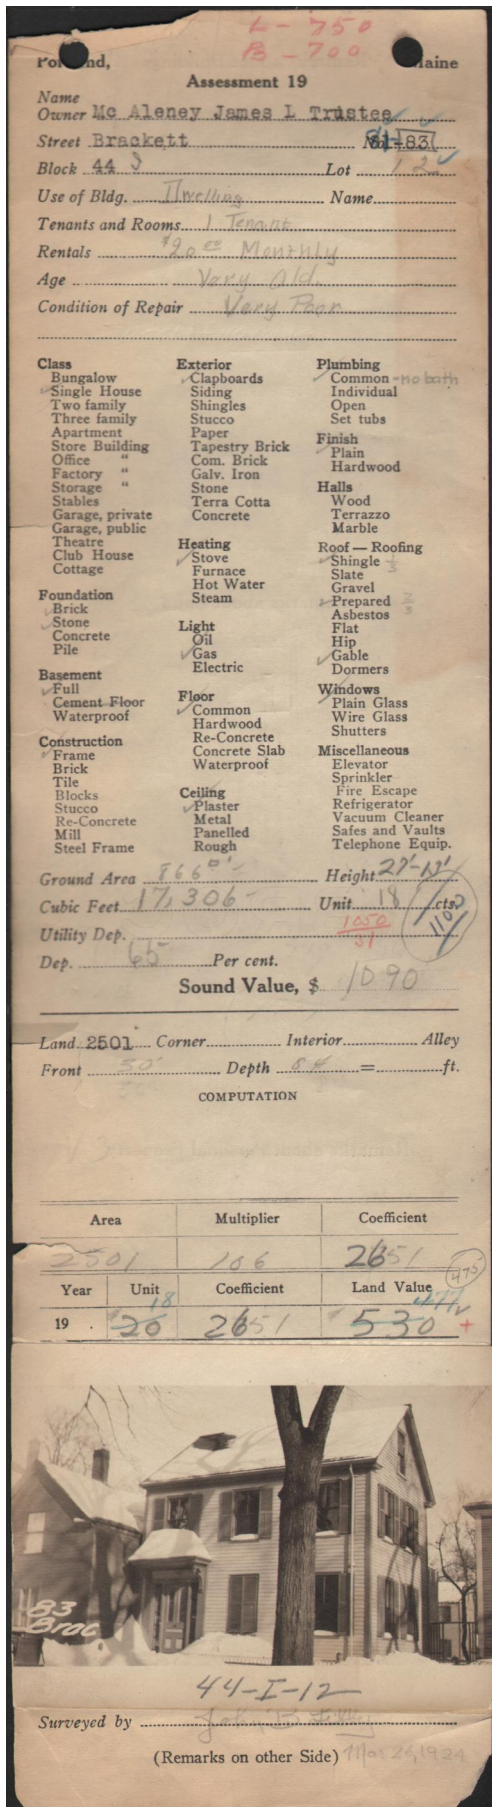 L - 750
B - 700
Portland, Maine
Assessment 19
Name
Owner Mc Aleney James L Trustee
Street Brackett No. 81-83
Block 44 Lot 12
Use of Bldg. Dwelling Name
Tenants and Rooms 1 Tenant
Rentals $20 00 Monthly
Age Very Old.
Condition of Repair Very Poor
Class
Bungalow
Single House
Two family
Three family
Apartment
Store Building
Office "
Factory "
Storage "
Stables
Garage, private
Garage, public
Theatre
Club House
Cottage
Foundation
Brick
Stone
Concrete
Pile
Basement
Full
Cement Floor
Waterproof
Construction
Frame
Brick
Tile
Blocks
Stucco
Re-Concrete
Mill
Steel Frame
Exterior
Clapboards
Siding
Shingles
Stucco
Paper
Tapestry Brick
Com. Brick
Galv. Iron
Stone
Terra Cotta
Concrete
Heating
Stove
Furnace
Hot Water
Steam
Light
Oil
Gas
Electric
Floor
Common
Hardwood
Re-Concrete
Concrete Slab
Waterproof
Ceiling
Plaster
Metal
Panelled
Rough
Plumbing
Common - no bath
Individual
Open
Set tubs
Finish
Plain
Hardwood
Halls
Wood
Terrazzo
Marble
Roof — Roofing
Shingle 1/3
Slate
Gravel
Prepared 2/3
Asbestos
Flat
Hip
Gable
Dormers
Windows
Plain Glass
Wire Glass
Shutters
Miscellaneous
Elevator
Sprinkler
Fire Escape
Refrigerator
Vacuum Cleaner
Safes and Vaults
Telephone Equip.
Ground Area 866 □' Height 27'-13'
Cubic Feet 17,306 - Unit 18 cts. 1100
Utility Dep. 1050
31
Dep. 65 Per cent.
Sound Value, $ 1090
Land 2501 Corner Interior Alley
Front 30' Depth 84 = ft.
COMPUTATION
Area Multiplier Coefficient
2501 106 2651
475
Year Unit Coefficient Land Value
18 477
19 . 20 2651 530 +
83
Brac
44-I-12
Surveyed by John B
(Remarks on other Side) Mar 26, 1924